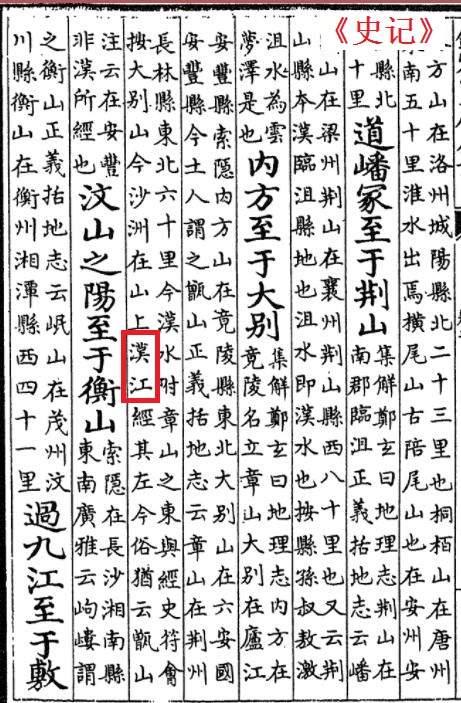 《史记》
方山在洛州城陽縣北二十三里也桐栢山在唐州
南五十里淮水出焉横尾山古陪尾山也在安州安
縣北
十里
道嶓冢至于荆山
集解鄭玄曰地理志荆山在
南郡臨沮正義括地志云嶓
山在梁州荆山在襄州荆山縣西八十里也又云荆
山縣本漢臨沮縣地也沮水即漢水也按縣孫叔敖激
沮水為雲
夢澤是也
内方至于大别
集解鄭玄曰地理志内方在
竟陵名立章山大别在廬江
安豐縣索隱内方山在竟陵縣東北大别山在六安國
安豐縣今土人謂之甑山正義括地志云章山在荆州
長林縣東北六十里今漢水附章山之東與經史符會
按大别山今沙洲在山上漢江經其左今俗猶云甑山
注云在安豐
非漢所經也
汶山之陽至于衡山
索隱在長沙湘南縣
東南廣雅云岣嶁謂
之衡山正義括地志云岷山在茂州汶
川縣衡山在衡州湘潭縣西四十一里
過九江至于敷